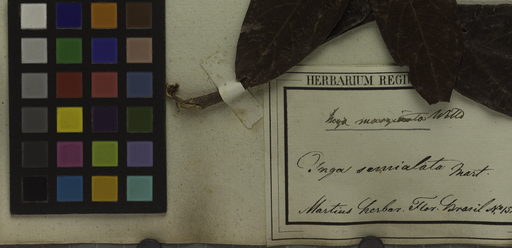 HERBARIUM REGI
Inga marginata Willd
Inga semialata Mart.
Martius herbar. Flor. Brasil No. 15